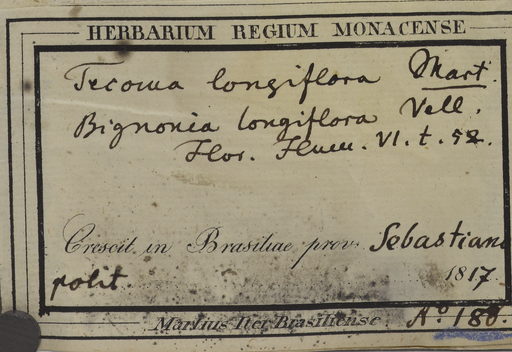 HERBARIUM REGIUM MONACENSE
Tecoma longiflora Mart.
Bignonia longiflora Vell.
Flor. Flum. VI. t. 52.
Crescit in Brasiliae prov. Sebastiano
polit. 1817.
Martius Iter Brasiliense. No 180.